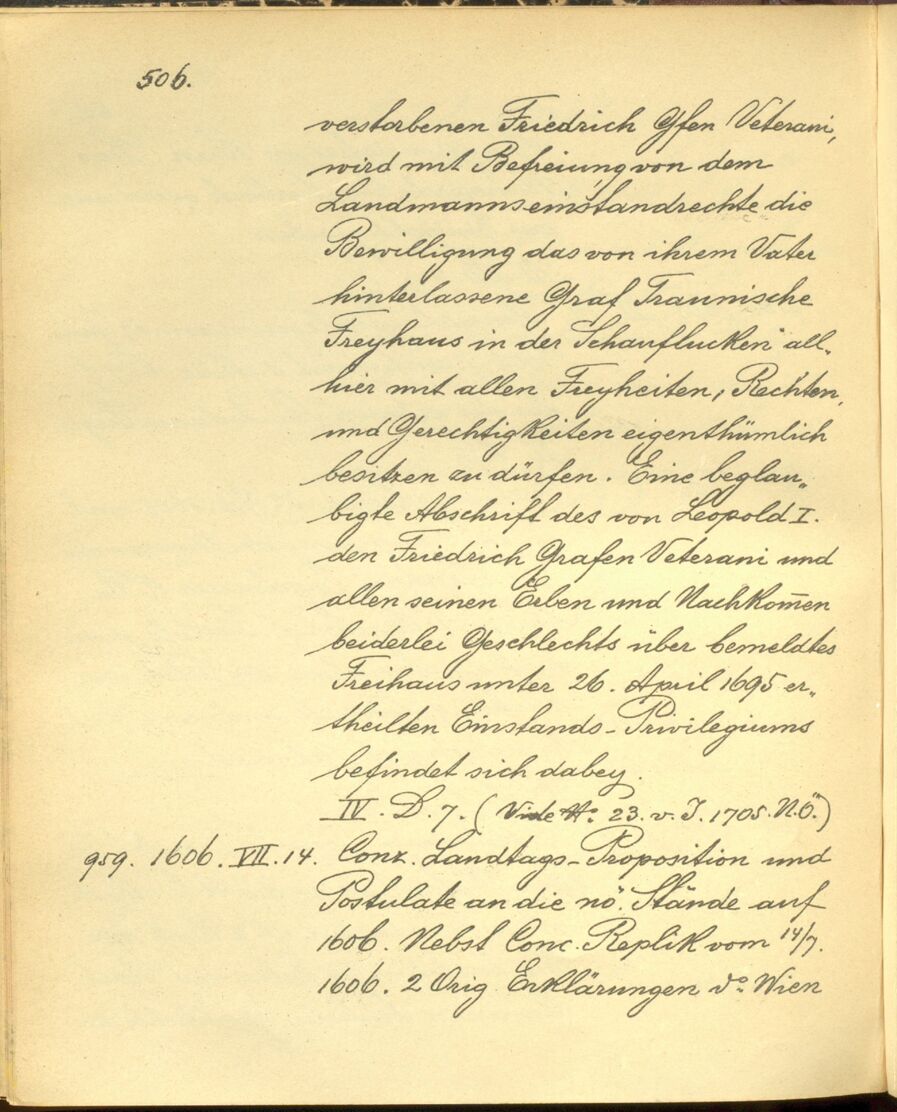 506.
verstorbenen Friedrich Gfen Veterani,
wird mit Befreiung von dem
Landmannseinstandrechte die
Bewilligung das von ihrem Vater
hinterlassene Graf Traunische
Freyhaus in der Schauflucken all-
hier mit allen Freyheiten, Rechten,
und Gerechtigkeiten eigenthümlich
besitzen zu dürfen. Eine beglau„
bigte Abschrift des von Leopold I.
den Friedrich Grafen Veterani und
allen seinen Erben und Nachkom̅en
beiderlei Geschlechts über bemeldtes
Freihaus unter 26. April 1695 er„
theilten Einstands-Privilegiums
befindet sich dabey.
IV. D. 7. (Vide No. 23. v. J. 1705. N.Ö.)
959. 1606. VII. 14. Conz. Landtags-Proposition und
Postulate an die nö. Stände auf
1606. Nebst Conc. Replik vom 14/7.
1606. 2 Orig. Erklärungen do. Wien